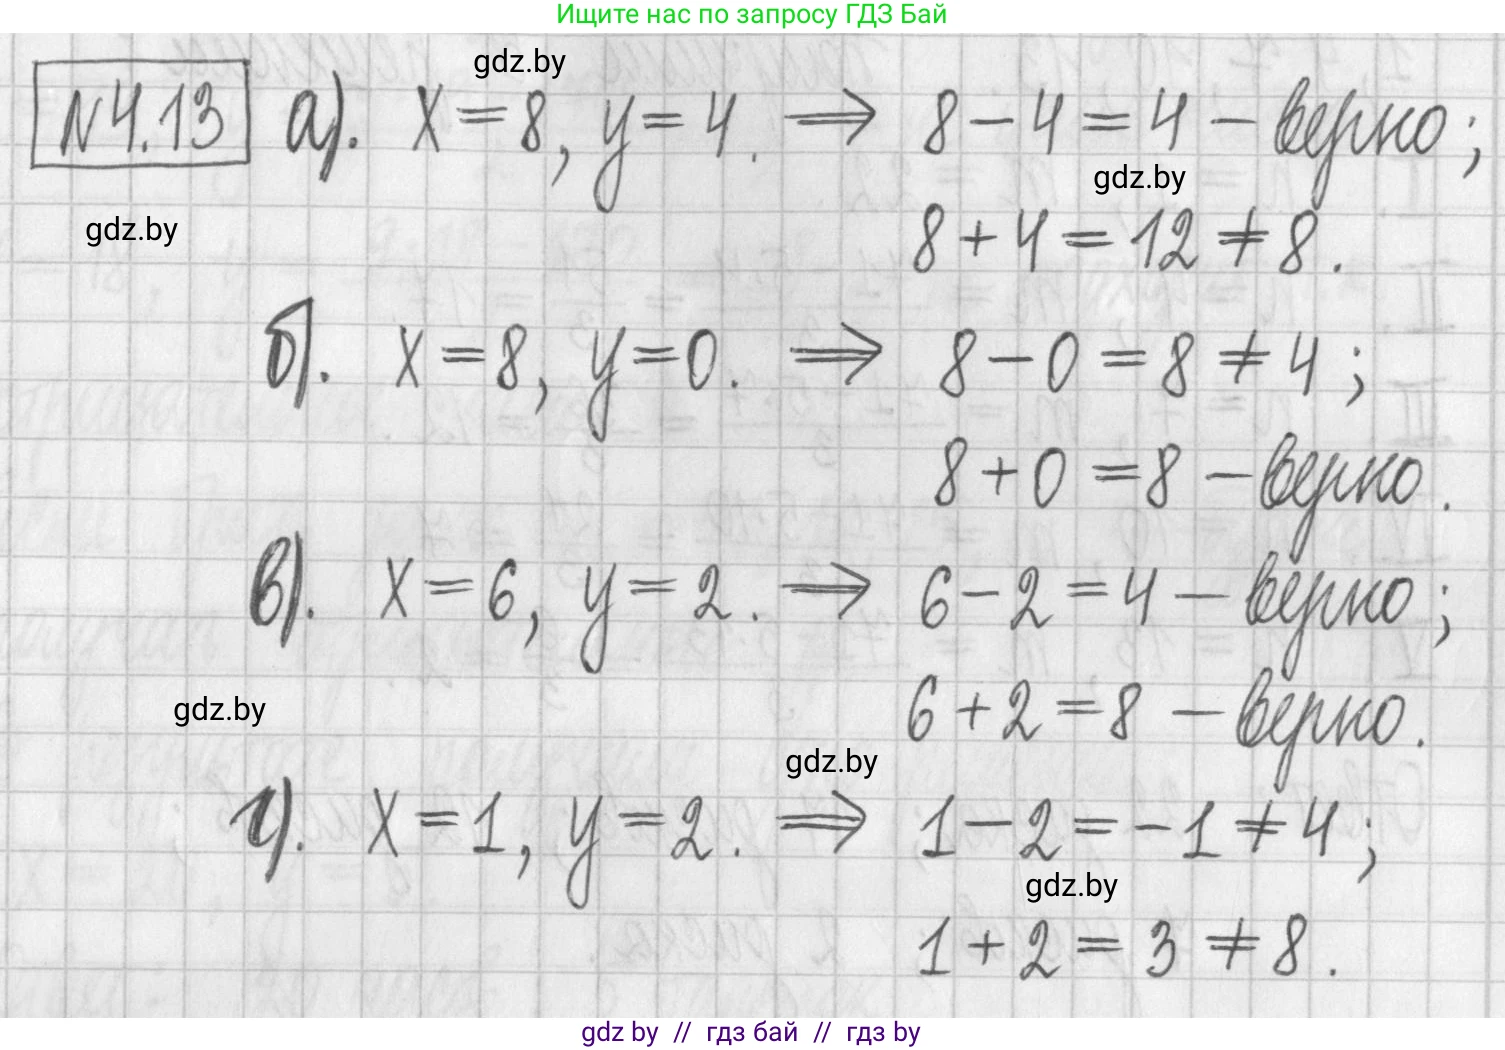 Ищите нас по запросу ГДЗ Бай
gdz.by
№4.13 а). x=8, y=4. ⇒ 8-4=4 - верно;
gdz.by
gdz.by
8+4=12≠8.
б). x=8, y=0. ⇒ 8-0=8≠4;
8+0=8 - верно.
в). x=6, y=2. ⇒ 6-2=4 - верно;
gdz.by
6+2=8 - верно.
gdz.by
г). x=1, y=2. ⇒ 1-2=-1≠4;
gdz.by
1+2=3≠8.
gdz by // гдз бай // гдз by